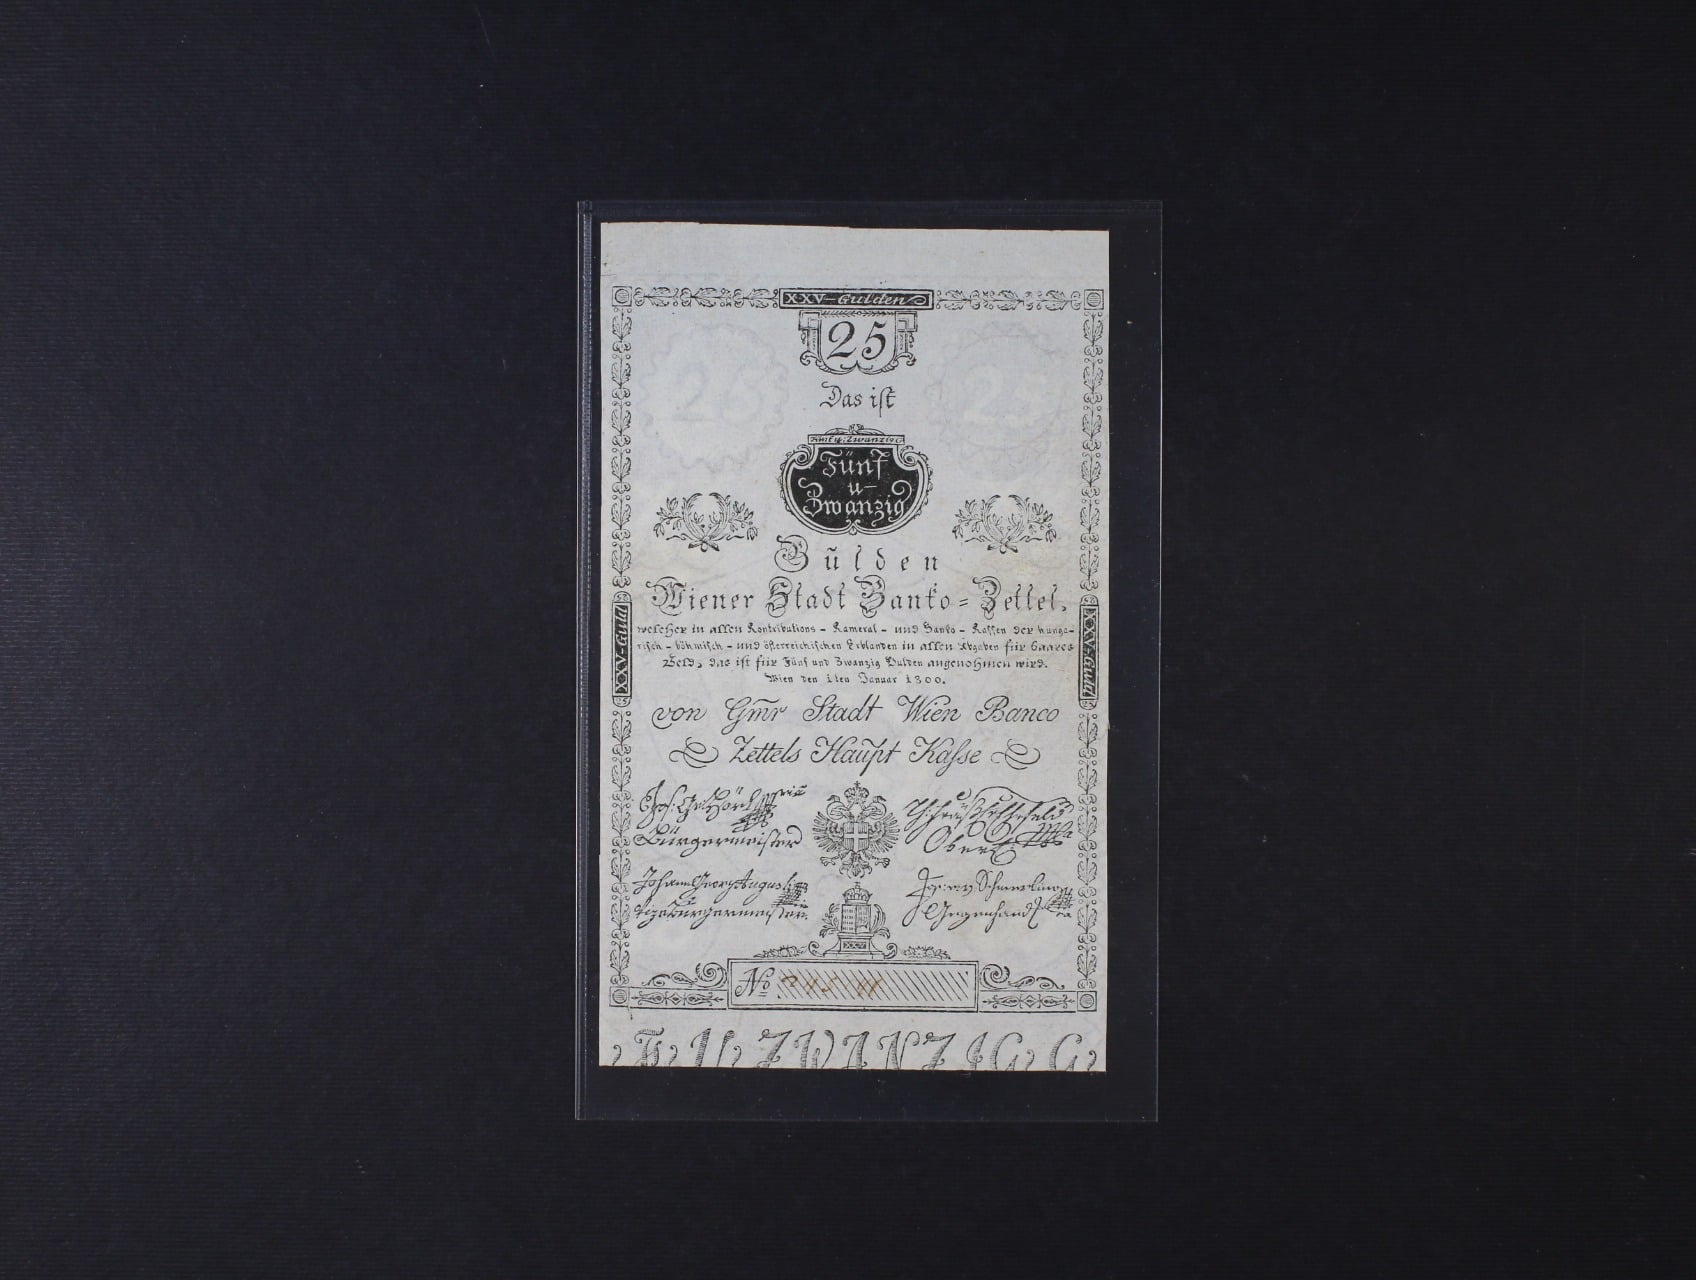 XXV-Gulden
25
Das ist
Fünf u. Zwanzig
Fünf
u-
Zwanzig
Gulden
Wiener Stadt Banko=Zettel,
welcher in allen Kontributions - Kameral - und Banko - Kassen der hunga-
risch - böhmisch - und österreichischen Erblanden in allen Abgaben für baares
Geld, das ist für Fünf und Zwanzig Gulden angenohmen wird.
Wien den 1ten Januar 1800.
XXV-Guld
XXV-Guld
von Gm̃r Stadt Wien Banco
Zettels Haupt Kasse
Bürgermeister
Johann Georg August
Vizebürgermeister.
Schmerling
Gegenhand
XXV
No
F U ZWANZIG G